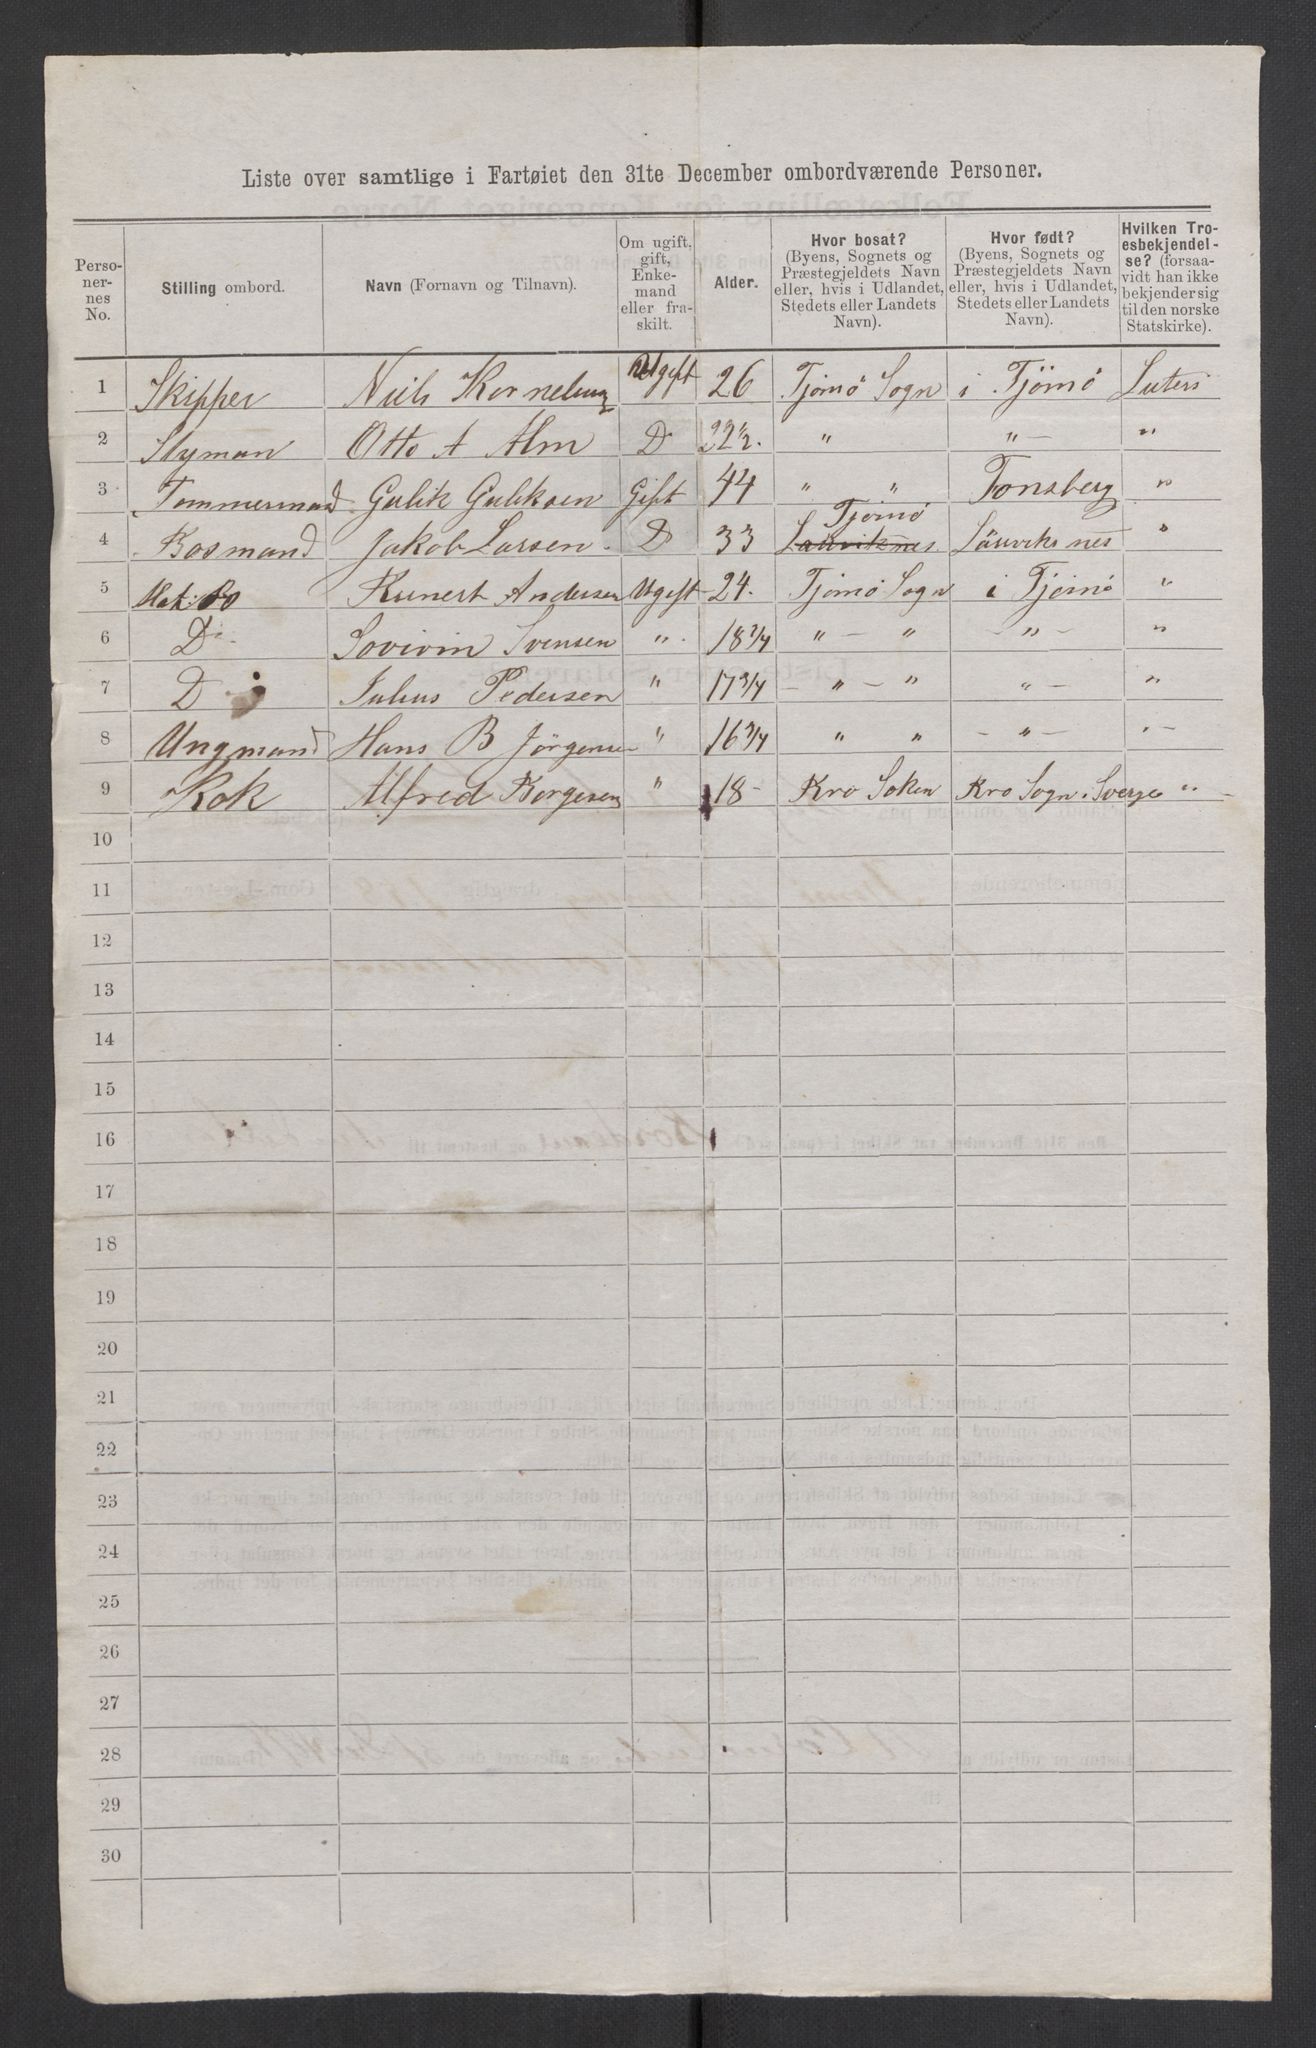 Liste over samtlige i Fartøiet den 31te December ombordværende Personer.
Perso-
ner-
nes
No.
Stilling ombord.
Navn (Fornavn og Tilnavn).
Om ugift,
gift,
Enke-
mand
eller fra-
skilt.
Alder.
Hvor bosat?
(Byens, Sognets og
Præstegjeldets Navn
eller, hvis i Udlandet,
Stedets eller Landets
Navn).
Hvor født?
(Byens, Sognets og
Præstegjeldets Navn
eller, hvis i Udlandet,
Stedets eller Landets
Navn).
Hvilken Tro-
esbekjendel-
se? (forsaa-
vidt han ikke
bekjender sig
til den norske
Statskirke).
1 Skipper Niels Kornelius Ugift 26 Tjömö Sogn i Tjömö Luters
2 Styman Otto A Alm D 22½. " " — "
3 Tømmermand Gulik Guliksen Gift 44 " " Tonsberg "
Tjömö
4 Bosmand Jakob Larsen. D 33 Lauviksnes Lauviksnes "
5 Mat: Kunert Andersen Ugift 24. Tjömö Sogn i Tjömö "
6 D Svensen " 18 3/4 " — " — " — "
7 D Julius Pedersen " 17 3/4 — " — " " — "
8 Ungmand Hans B Jörgensen " 16 3/4 " " — " — " —
9 Kok Alfred Borgesen " 18 — Kro Soken Kro Sogn i Sverge "
10
11
12
13
14
15
16
17
18
19
20
21
22
23
24
25
26
27
28
29
30